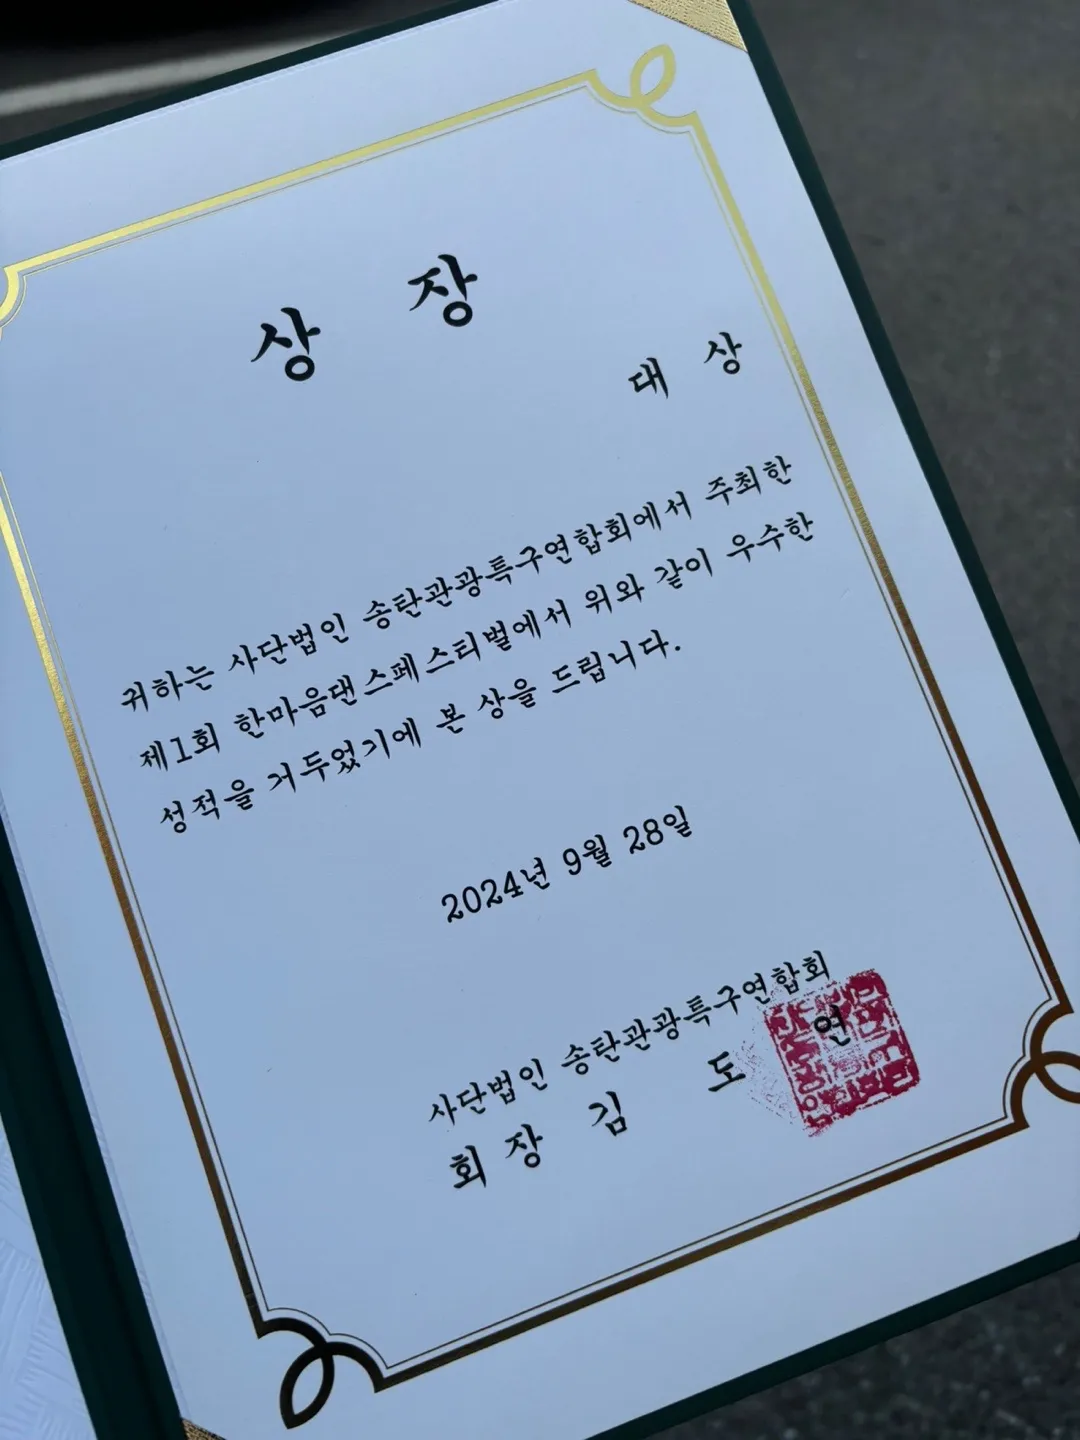 상 장
대 상
귀하는 사단법인 송탄관광특구연합회에서 주최한
제1회 한마음댄스페스티벌에서 위와 같이 우수한
성적을 거두었기에 본 상을 드립니다.
2024년 9월 28일
사단법인 송탄관광특구연합회
회 장 김 도 연